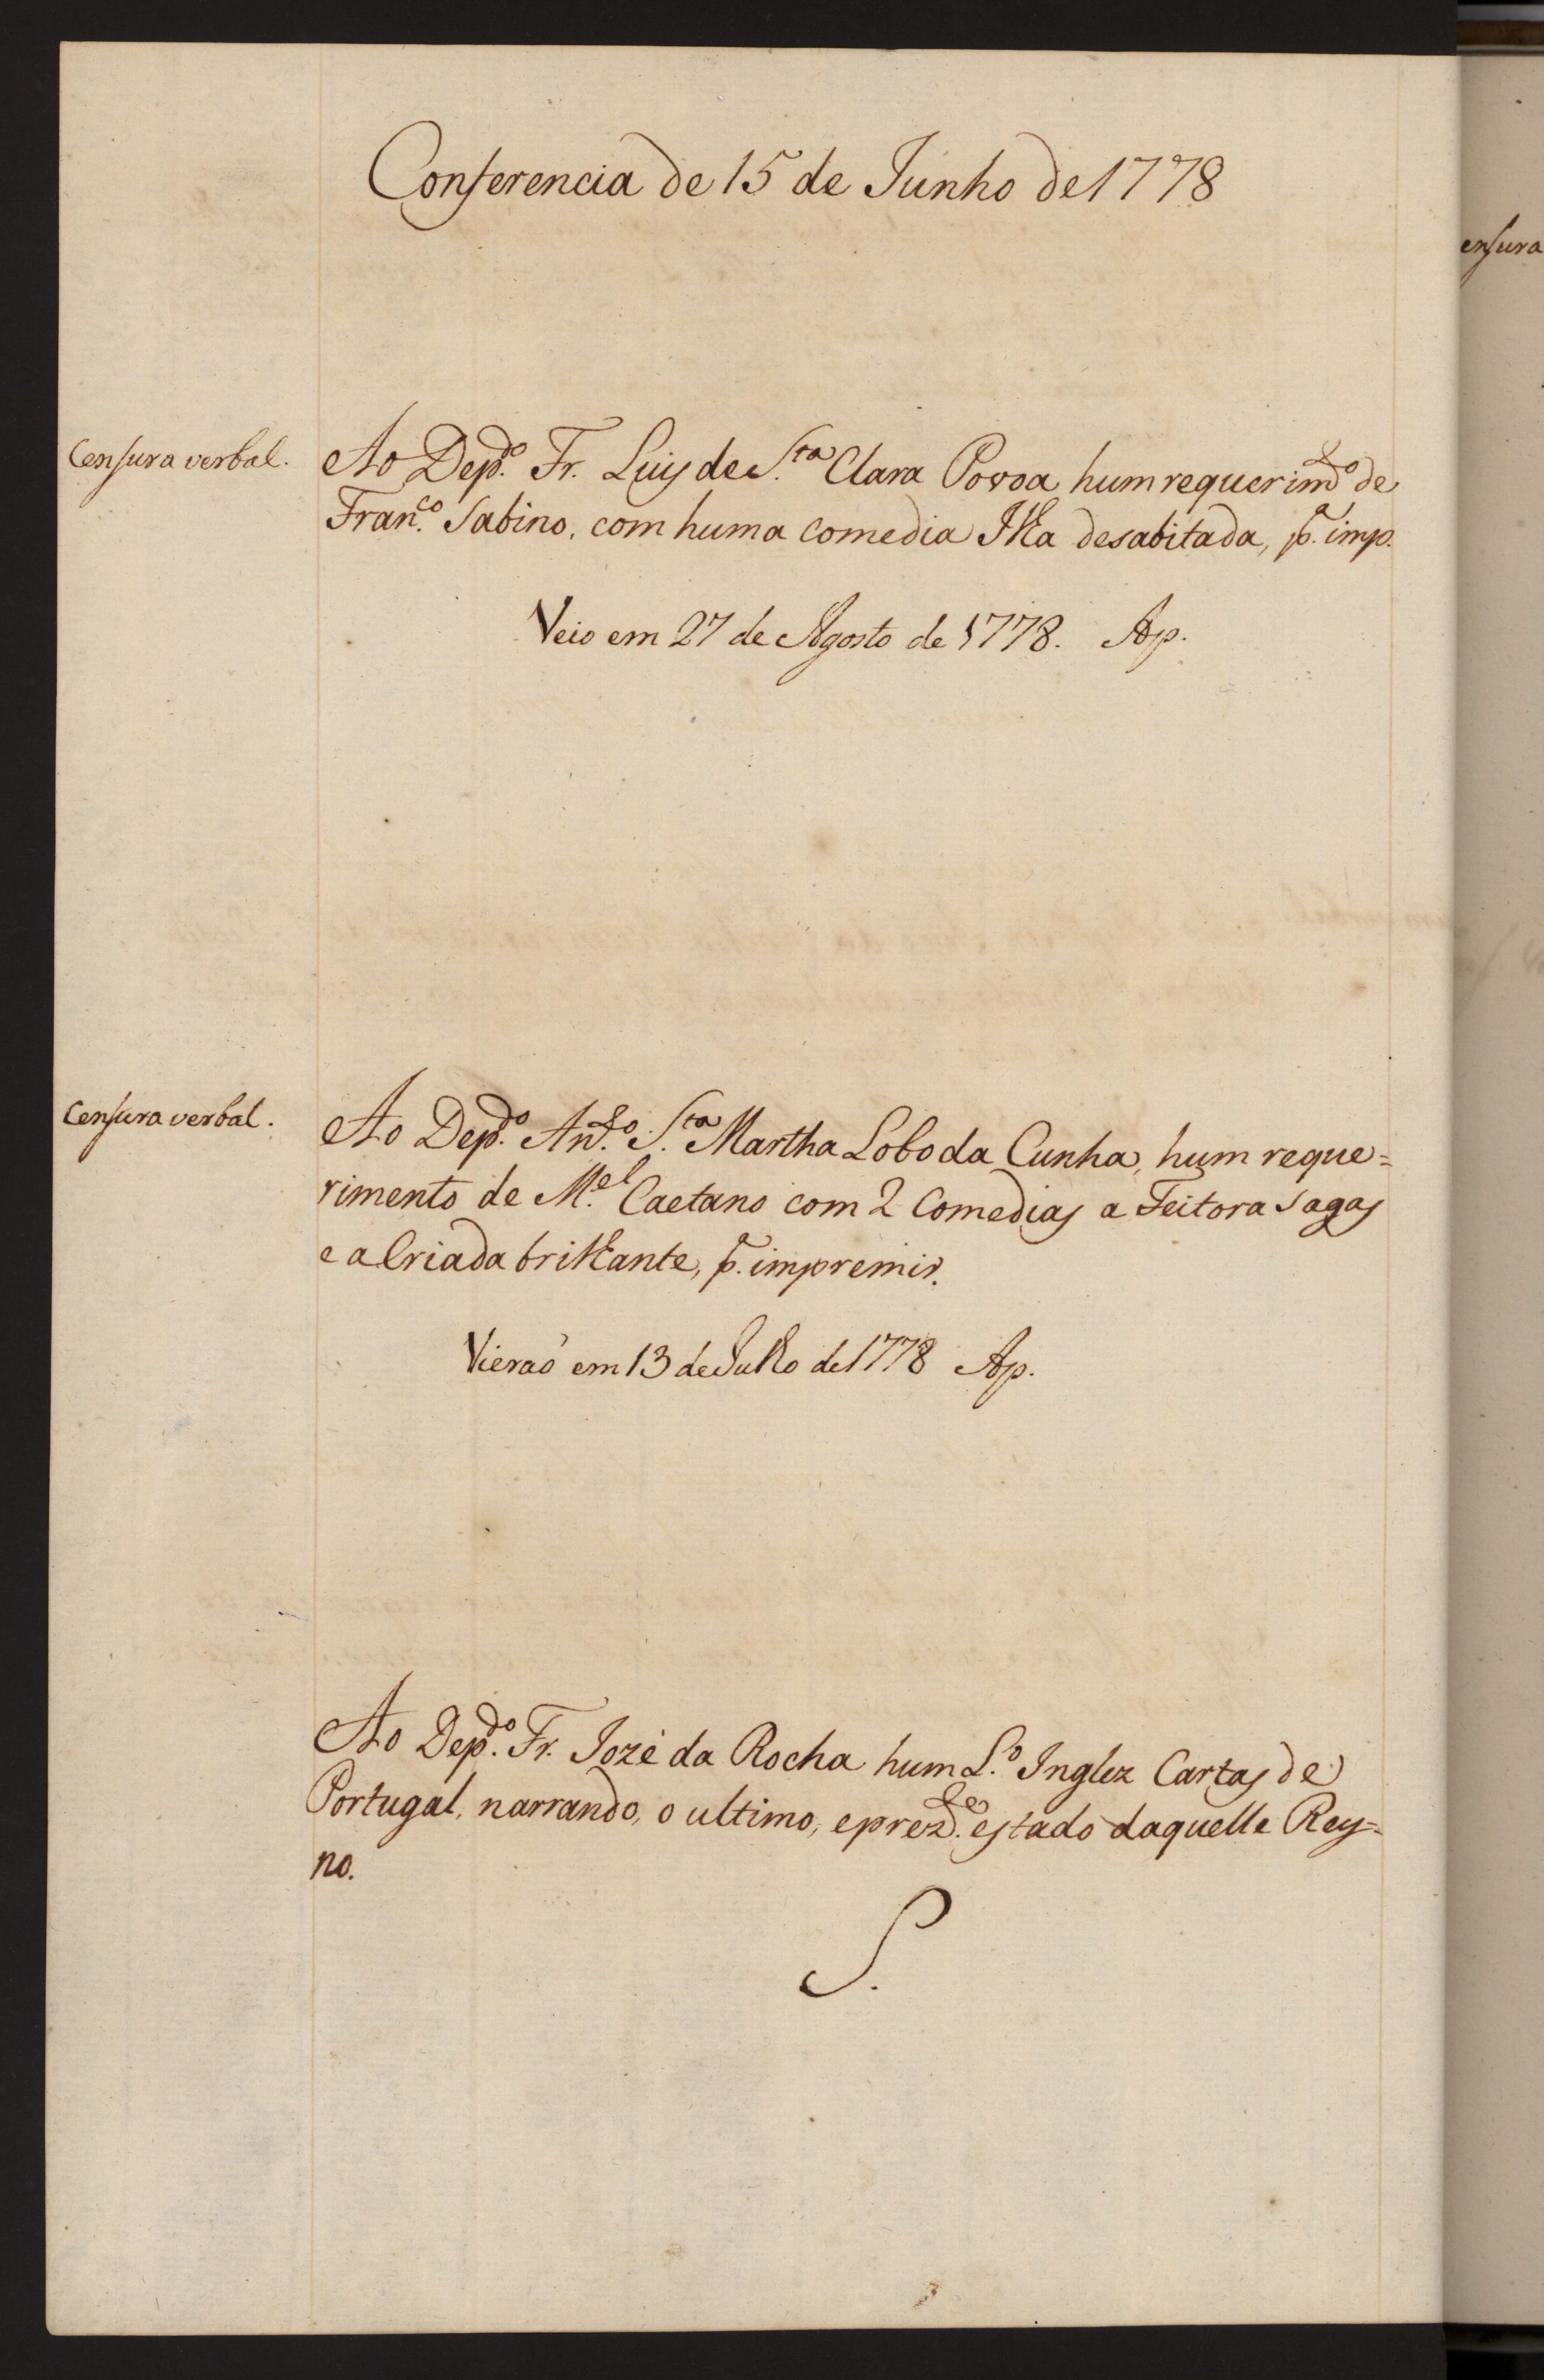 Conferencia de 15 de Junho de 1778
Censura verbal.
Ao Dep.do Fr. Luis de S.ta Clara Povoa hum requerim.to de
Fran.co Sabino, com huma comedia Ilha desabitada, p.a imp.
Veio em 27 de Agosto de 1778. Ap.
Censura verbal.
Ao Dep.do Ant.o S.ta Martha Lobo da Cunha, hum reque=
rimento de M.el Caetano com 2 Comedias a Feitora sagas
e a Criada brilhante, p.a impremir.
Vieraõ em 13 de Julho de 1778 Ap.
Ao Dep.do Fr. Jozé da Rocha hum L.o Inglez Cartas de
Portugal, narrando, o ultimo, e prez.te estado daquelle Rey=
no.
S.
ensura